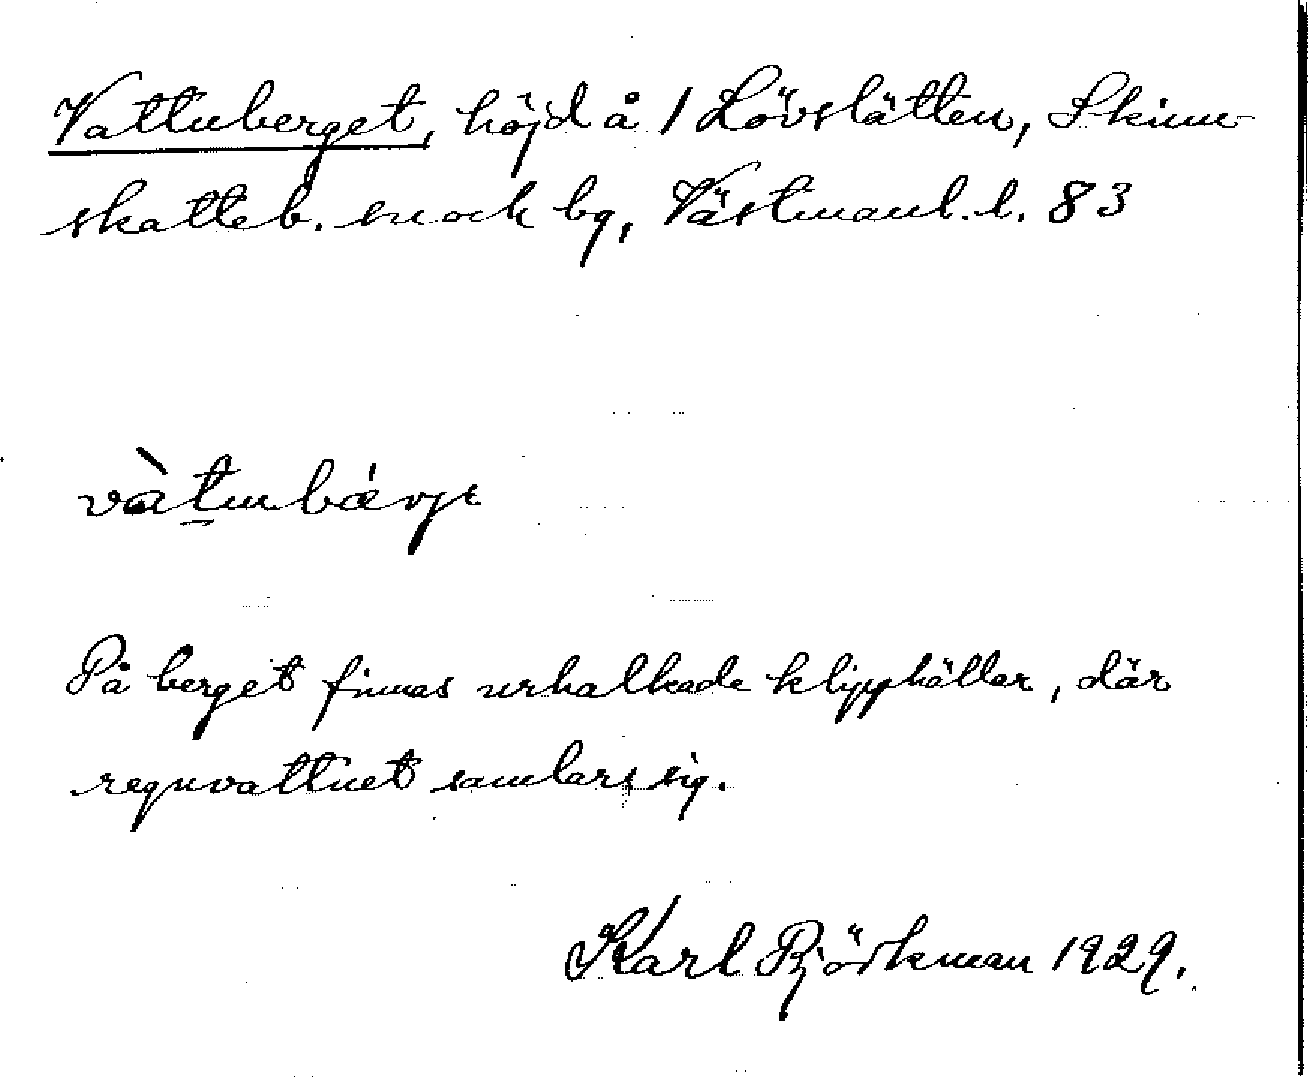 Vattuberget, höjd å 1 Lövslätten, Skinn-
skatteb. sn och bg, Västmanl. l. 83
vàt̲ubǽrje
På berget finnas urhalkade klipphällar, där
regnvattnet samlars sig.
Karl Björkman 1929.